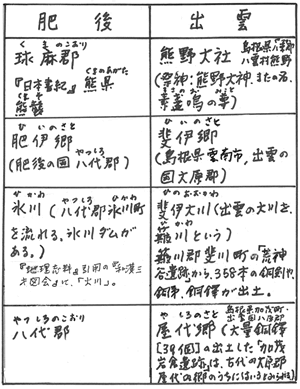 肥後
出雲
くまのこおり
球麻郡
『日本書紀』熊県
くまのあがた
熊襲
くまそ
熊野大社
島根県八束郡
八雲村熊野
(祭神:熊野大神、またの名、
素盞嗚の尊)
ひいのさと
肥伊郷
(肥後の国八代郡)
やつしろ
ひいのさと
斐伊郷
(島根県雲南市、出雲の
国大原郡)
ひかわ
氷川(八代郡氷川町
やつしろ ひかわ
を流れる、氷川ダムが
ある。)
『地理志料』引用の『和漢三
才図会』に、「火川」。
ひのおおかわ
斐伊大川(出雲の大川を、
簸川という)
簸川郡斐川町の「荒神
谷遺跡」から、358本の銅剣や
銅矛、銅鐸が出土。
やつしろのこおり
八代郡
やしろのさと
屋代郷
島根県加茂町・
(大量銅鐸
[39個]の出土した「加茂
岩倉遺跡」は、古代の大原郡
屋代の郷のうちにはいるとみられる)